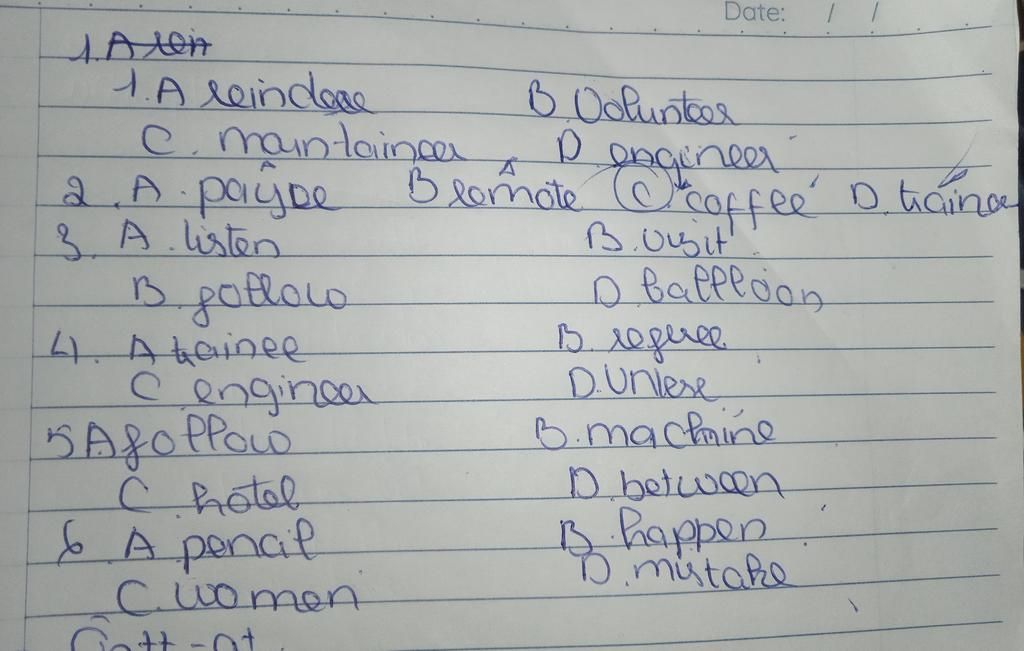 Date: / /
1. A rein
1. A reindeer B. Volunteer
C. mauntaineer D. engineer
2. A. payee B remote C coffee D. trainee
3. A. listen B. visit
B. follow D ballloon
4. A trainee B. refuee
C engineer D. Unlese
5 A follow B. machine
C. hotel D. between
6 A pencil B. happen
C. women D. mistake